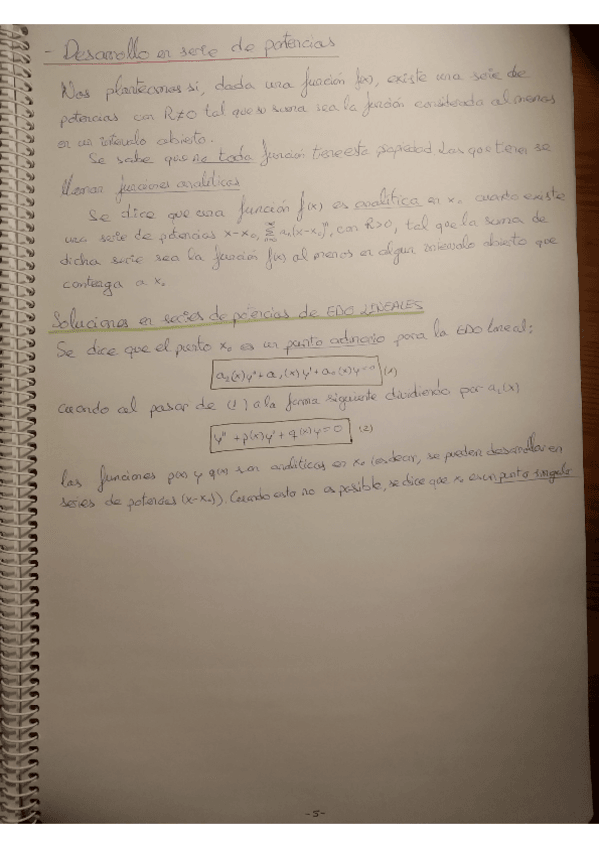 - Desarrollo en serie de potencias
Nos planteamos si, dada una función f(x), existe una serie de
potencias con R≠0 tal que su suma sea la función considerada al menos
en un intervalo abierto.
Se sabe que no toda función tiene esta propiedad. Las que tienen se
llaman funciones analíticas
Se dice que una función f(x) es analítica en x₀ cuando existe
una serie de potencias x-x₀, Σ aₙ(x-x₀)ⁿ, con R>0, tal que la suma de
dicha serie sea la función f(x) al menos en algun intervalo abierto que
contenga a x₀
Soluciones en series de potencias de EDO LINEALES
Se dice que el punto x₀ es un punto ordinario para la EDO lineal:
a₂(x)y''+a₁(x)y'+a₀(x)y=0 (1)
Cuando al pasar de (1) a la forma siguiente dividiendo por a₂(x)
y''+p(x)y'+q(x)y=0 (2)
las funciones p(x) y q(x) son analíticas en x₀ (es decir, se pueden desarrollar en
series de potencias (x-x₀)). Cuando esto no es posible, se dice que x₀ es un punto singular
-5-